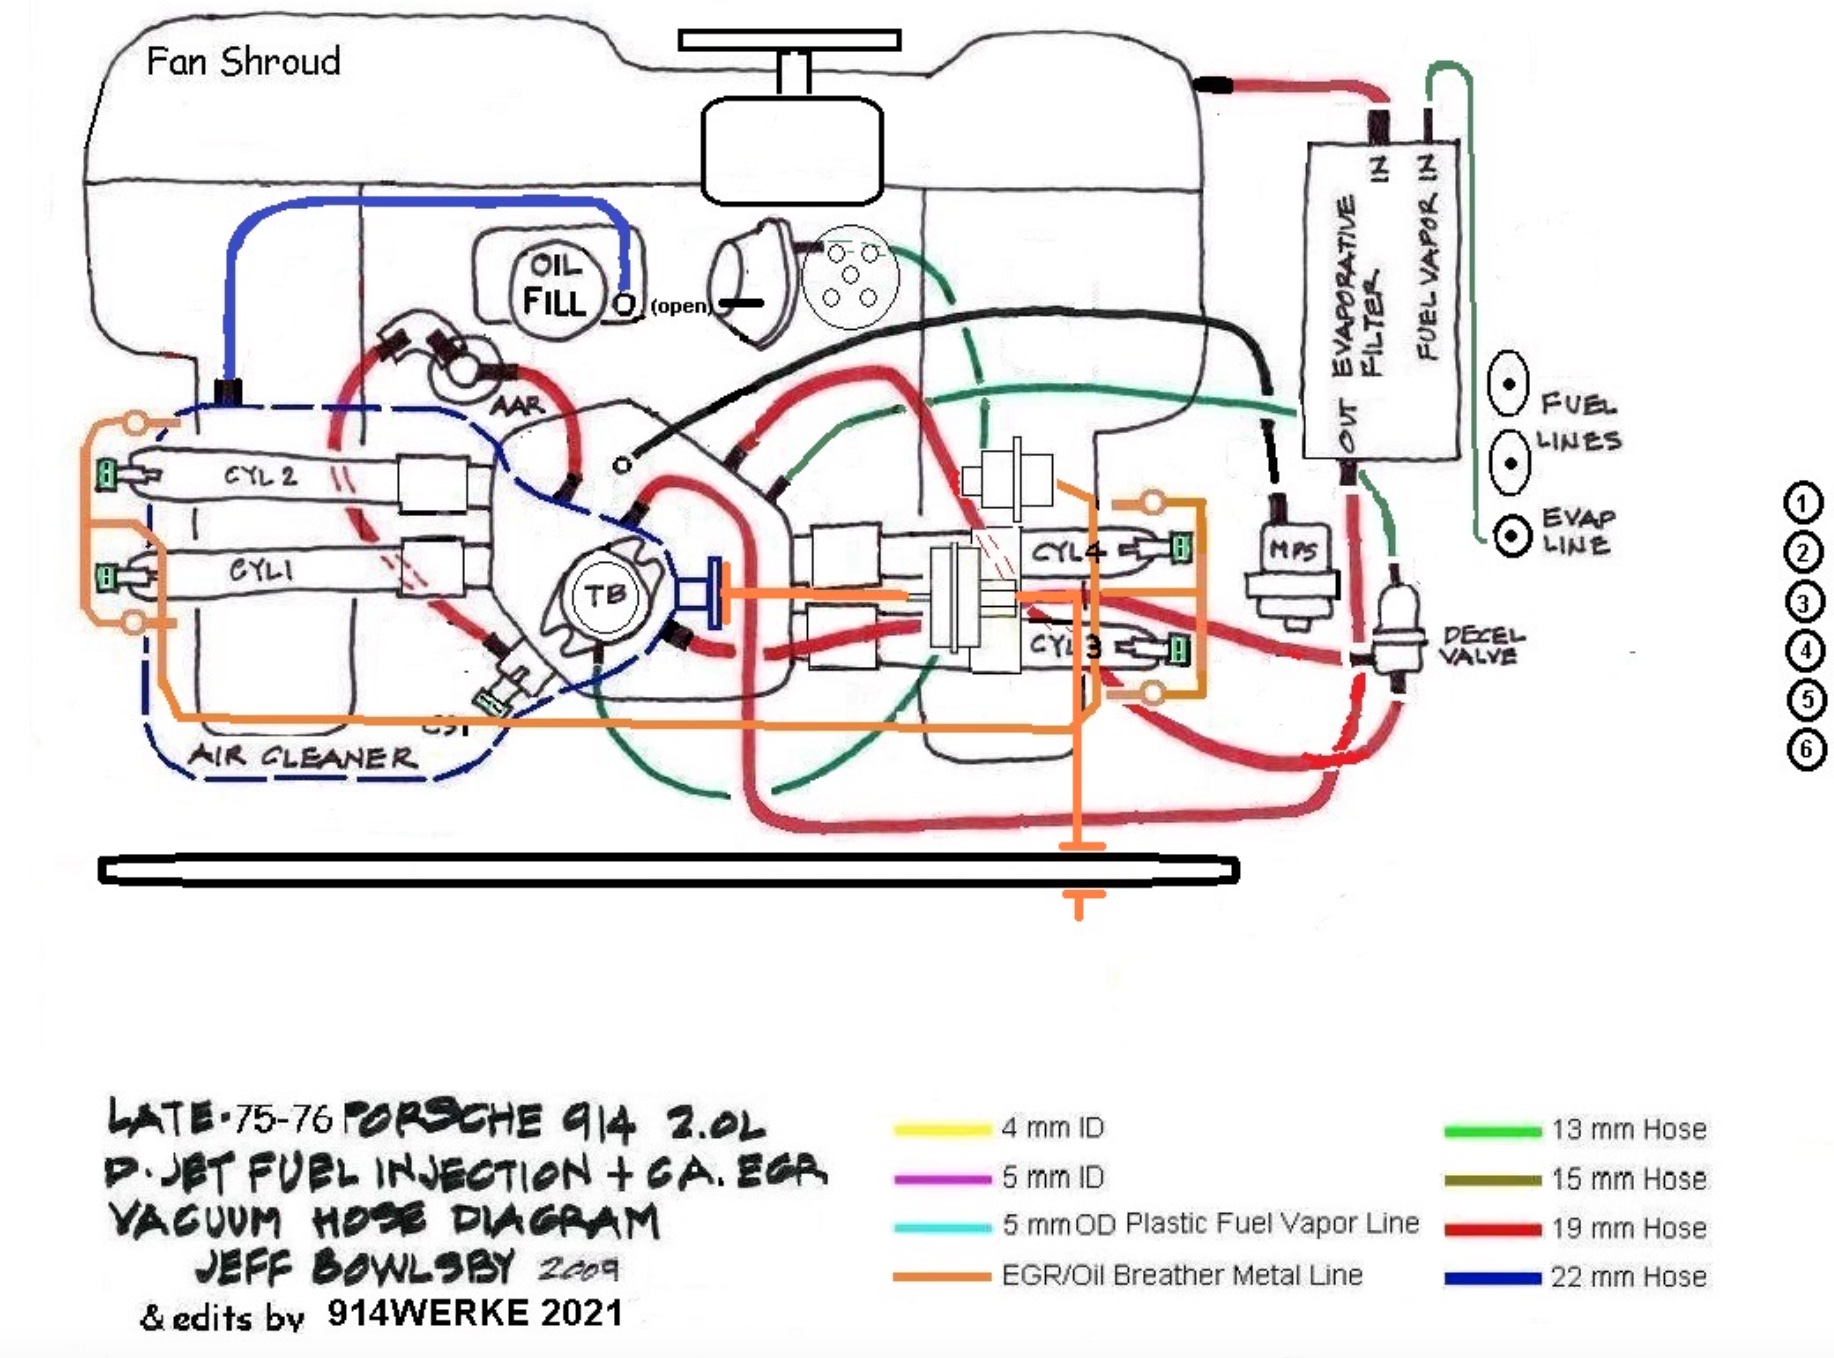 Fan Shroud
OIL
FILL
(open)
AAR
IN
IN
EVAPORATIVE
FILTER
FUEL VAPOR
OUT
FUEL
LINES
EVAP
LINE
CYL 2
CYL 1
CYL 4
CYL 3
TB
MPS
DECEL
VALVE
AIR CLEANER
1
2
3
4
5
6
LATE·75-76 PORSCHE 914 2.0L
D·JET FUEL INJECTION + CA. EGR
VACUUM HOSE DIAGRAM
JEFF BOWLSBY 2009
& edits by 914WERKE 2021
4 mm ID
5 mm ID
5 mm OD Plastic Fuel Vapor Line
EGR/Oil Breather Metal Line
13 mm Hose
15 mm Hose
19 mm Hose
22 mm Hose